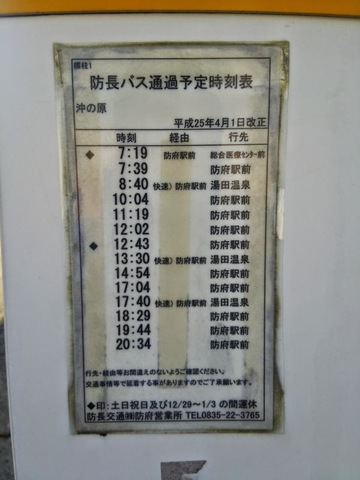 標柱1
防長バス通過予定時刻表
沖の原
平成25年4月1日改正
時刻 経由 行先
◆ 7:19 防府駅前 総合医療センター前
7:39 防府駅前
8:40 快速）防府駅前 湯田温泉
10:04 防府駅前
11:19 防府駅前
12:02 防府駅前
◆ 12:43 防府駅前
13:30 快速）防府駅前 湯田温泉
14:54 防府駅前
17:04 防府駅前
17:40 快速）防府駅前 湯田温泉
18:29 防府駅前
19:44 防府駅前
20:34 防府駅前
行先・経由等お間違えのないようご確認ください。
交通事情等で延着する事がありますのでご了承願います。
◆印：土日祝日及び12/29～1/3 の間運休
防長交通㈱防府営業所 TEL0835-22-3765